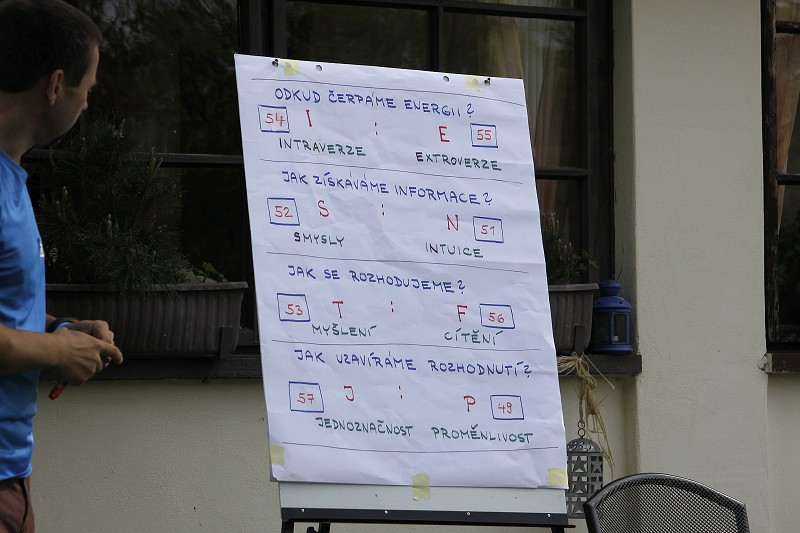 ODKUD ČERPÁME ENERGII?
54 I : E 55
INTRAVERZE EXTROVERZE
JAK ZÍSKÁVÁME INFORMACE?
52 S : N 51
SMYSLY INTUICE
JAK SE ROZHODUJEME?
53 T : F 56
MYŠLENÍ CÍTĚNÍ
JAK UZAVÍRÁME ROZHODNUTÍ?
57 J : P 49
JEDNOZNAČNOST PROMĚNLIVOST